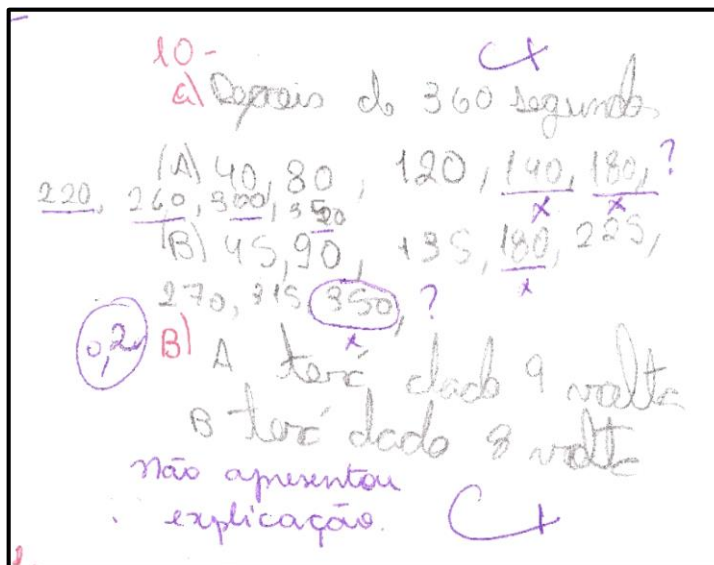 10-
a) Depois de 360 segundos
(A) 40, 80, 120, 140, 180, ?
220, 260, 300, 350
20
(B) 45, 90, 135, 180, 225,
270, 315, 350, ?
0,2 B) A terá dado 9 volta
B terá dado 8 volta
não apresentou
explicação.